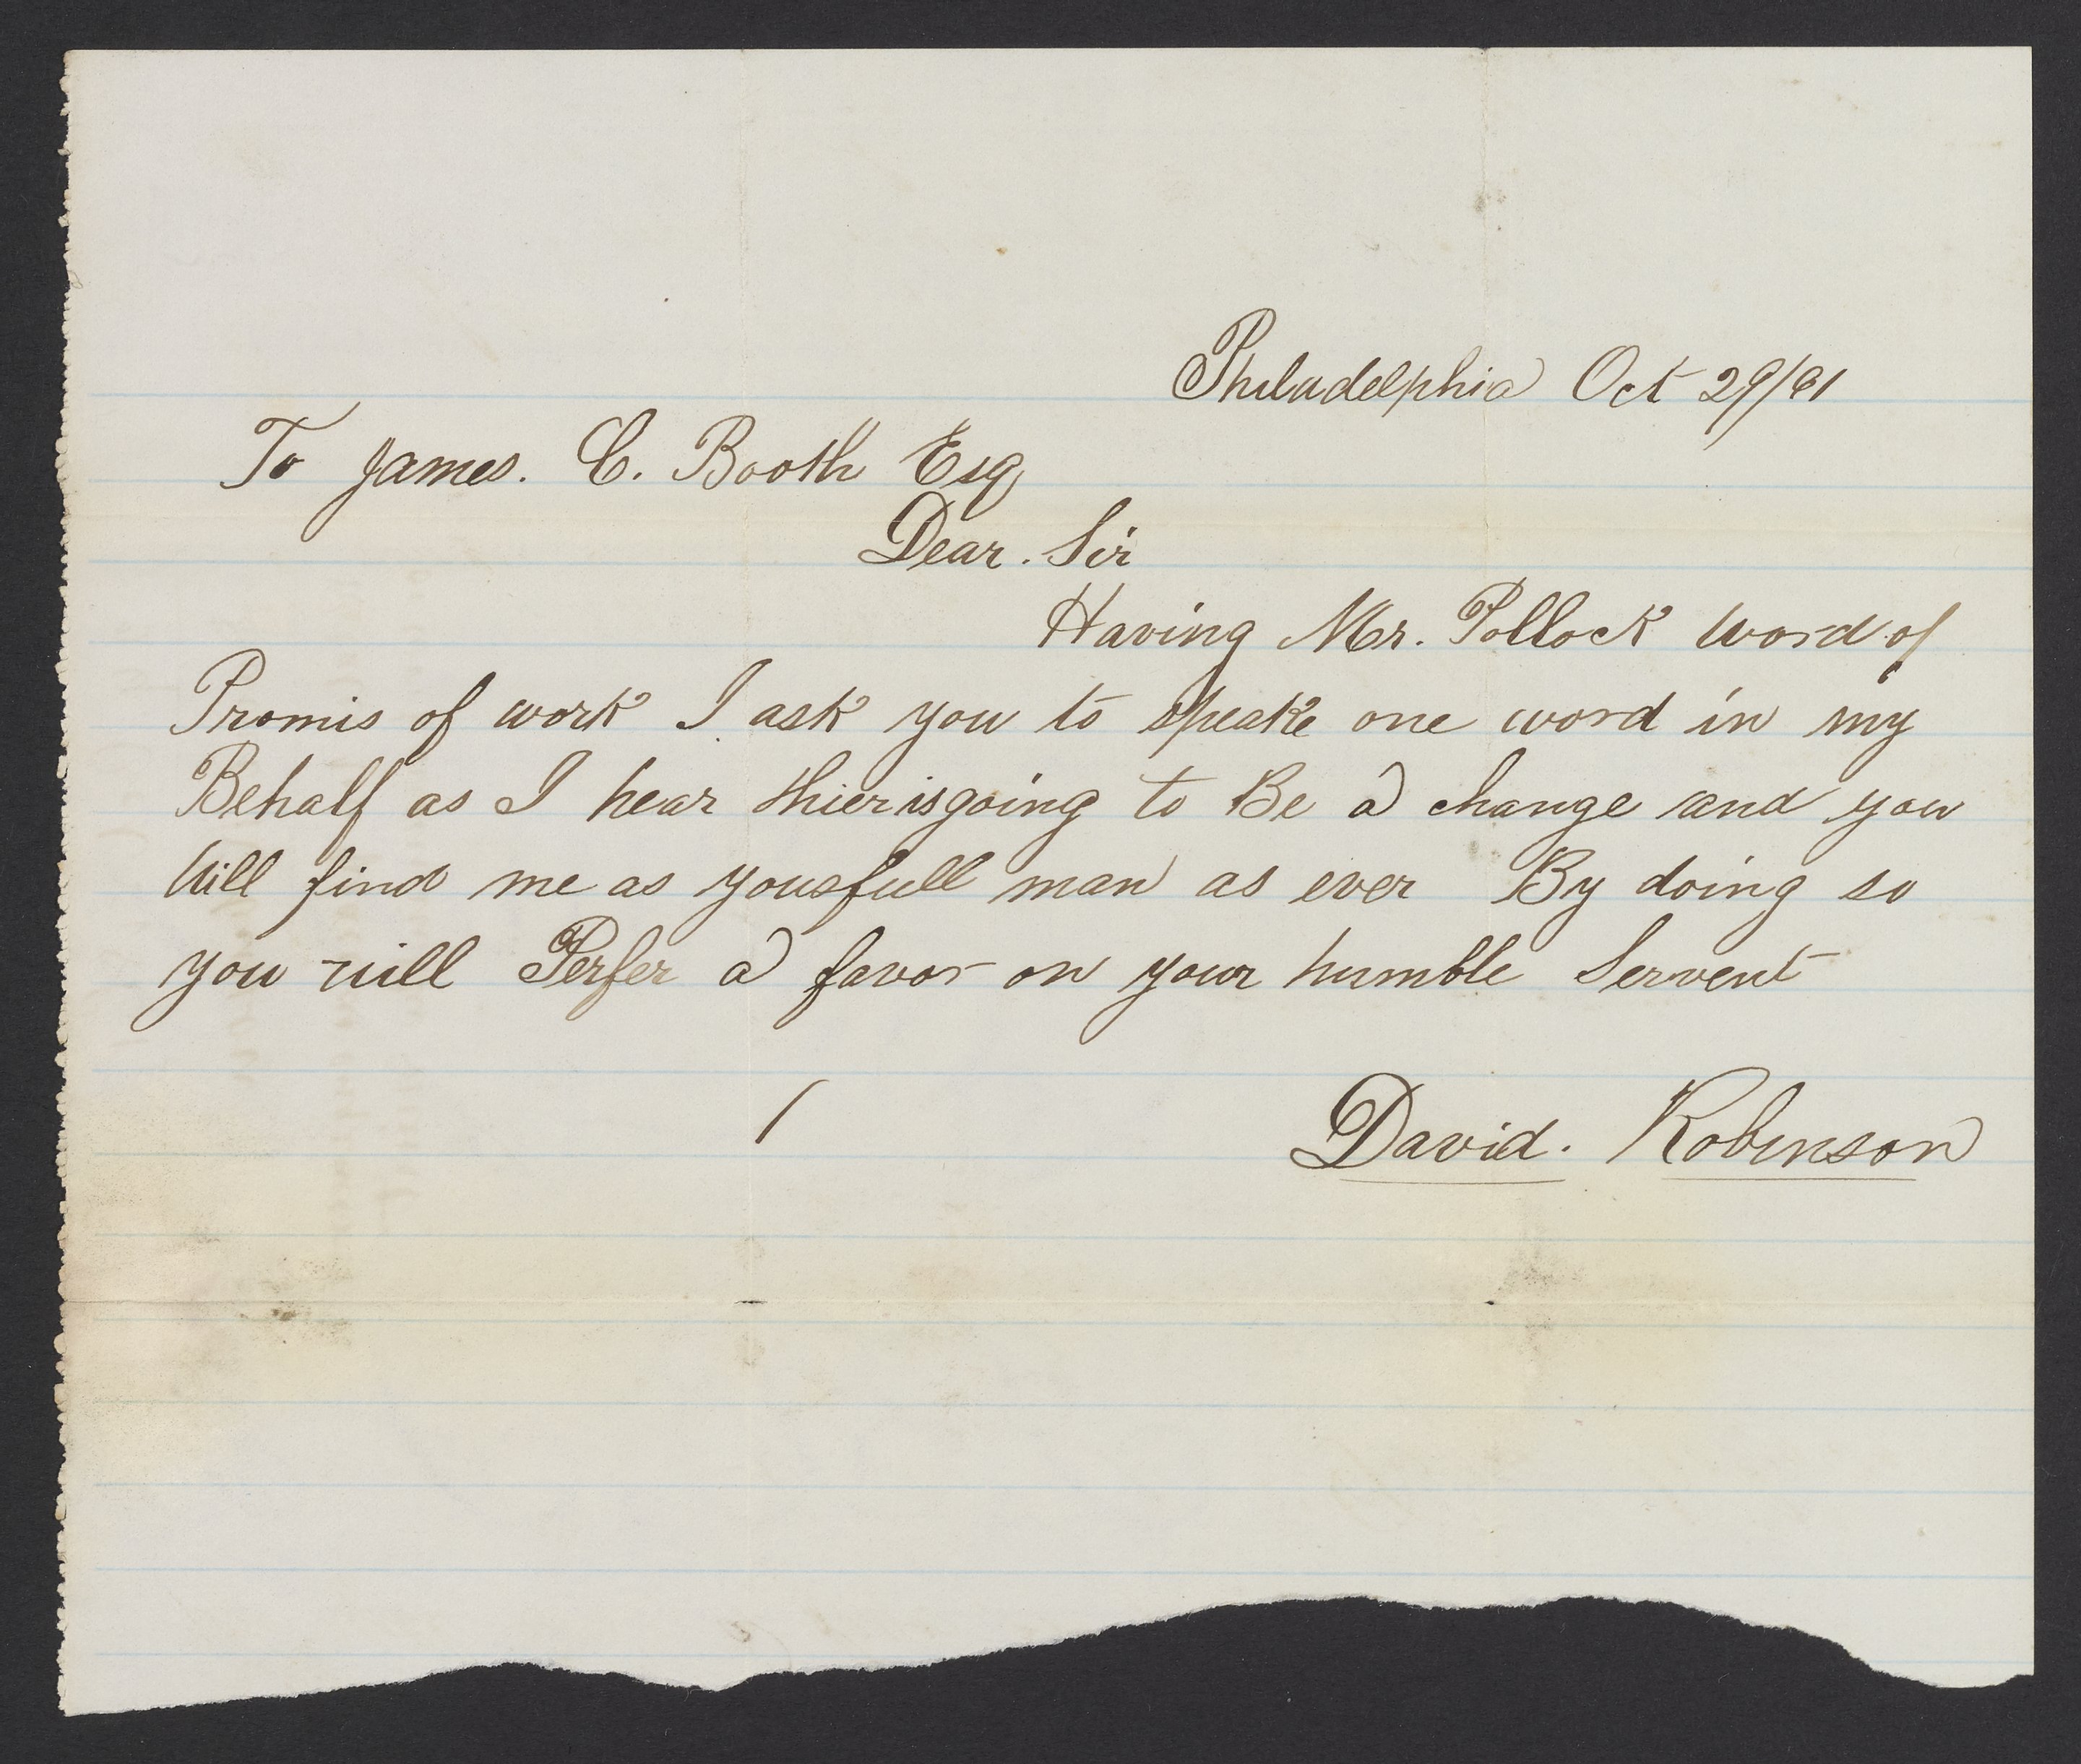 Philadelphia Oct 29/61
To James. C. Booth Esq
Dear. Sir
Having Mr. Pollock word of
Promis of work I ask you to speake one word in my
Behalf as I hear thier is going to Be a change and you
will find me as yousfull man as ever By doing so
you will Perfer a favor on your humble Servent
David. Robinson